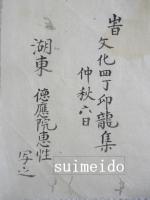 旹
文化四丁卯龍集
仲秋六日
湖東 德應院惠性
写之
suimeido